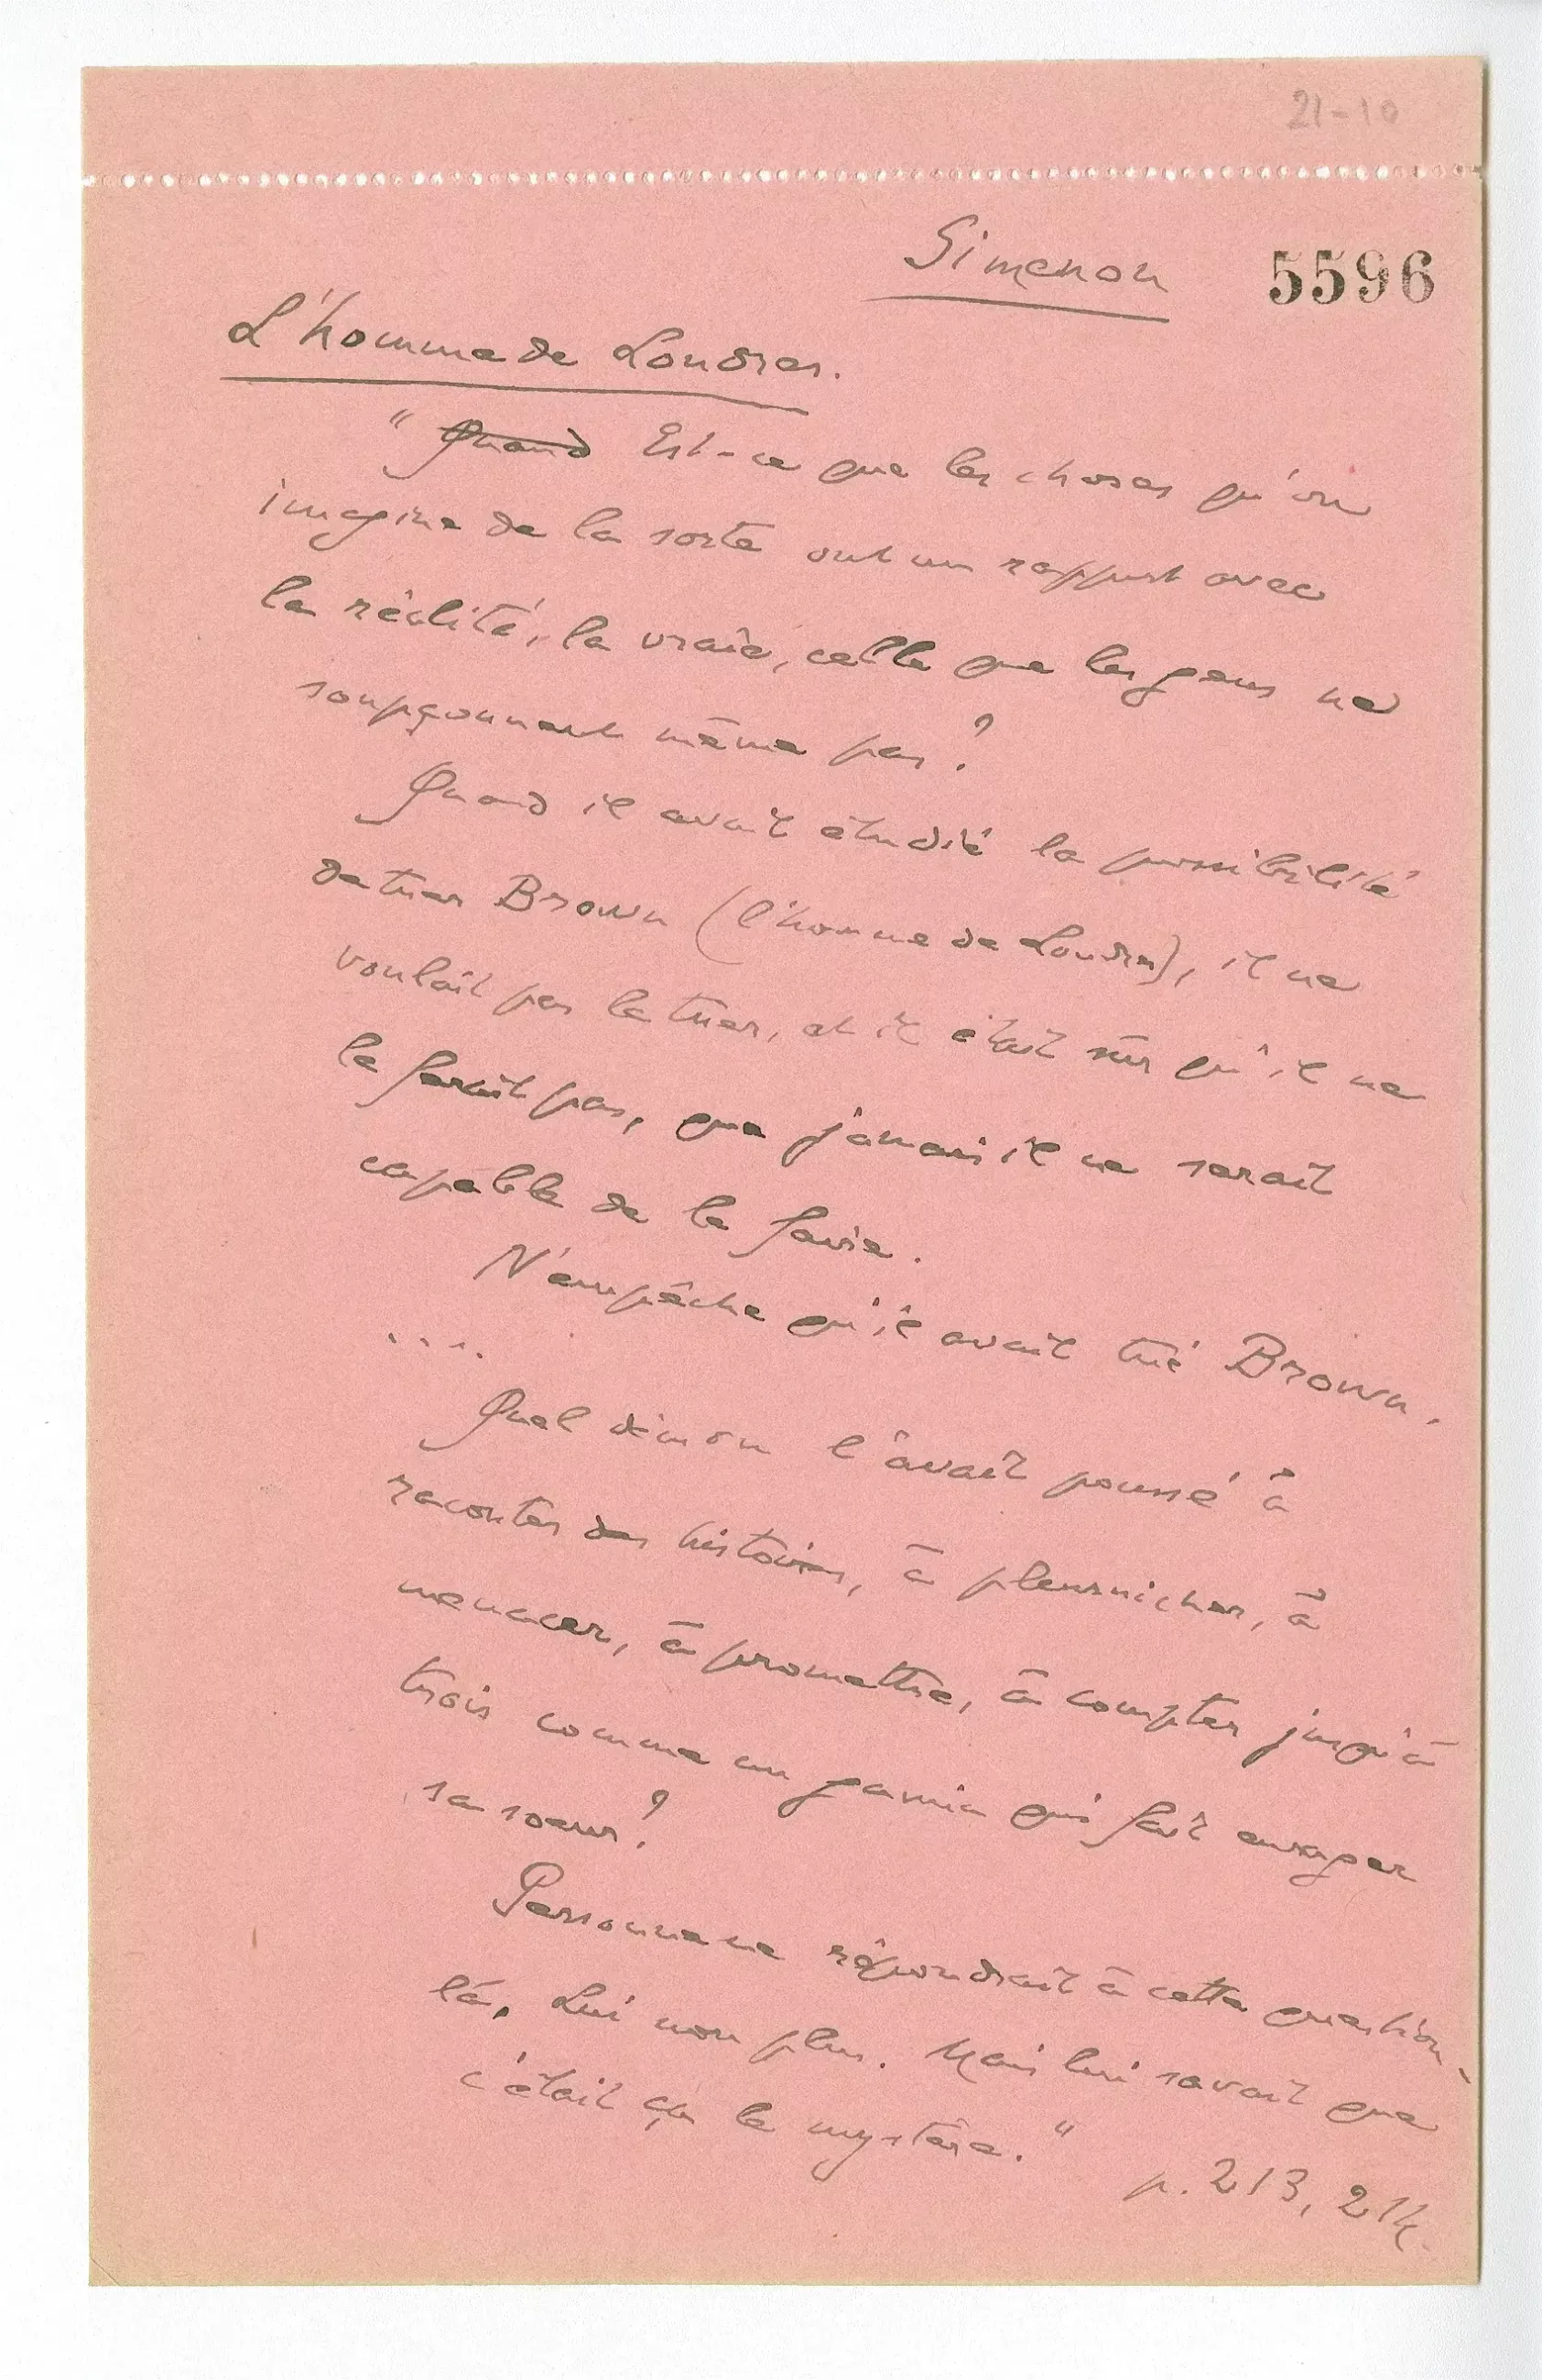 21-10
Simenon 5596
L'homme de Londres.
" Quand Est-ce que les choses qu'on
imagine de la sorte ont un rapport avec
la réalité, la vraie, celle que les gens ne
soupçonnent même pas ?
Quand il avait étudié la possibilité
de tuer Brown (l'homme de Londres), il ne
voulait pas le tuer, et il était sûr qu'il ne
le ferait pas, que jamais il ne serait
capable de le faire.
N'empêche qu'il avait tué Brown.
....
Quel démon l'avait poussé à
raconter des histoires, à pleurnicher, à
menacer, à promettre, à compter jusqu'à
trois comme un gamin qui fait enrager
sa soeur ?
Personne ne répondrait à cette question-
là. Lui non plus. Mais lui savait que
c'était ça le mystère. "
p. 213, 214.